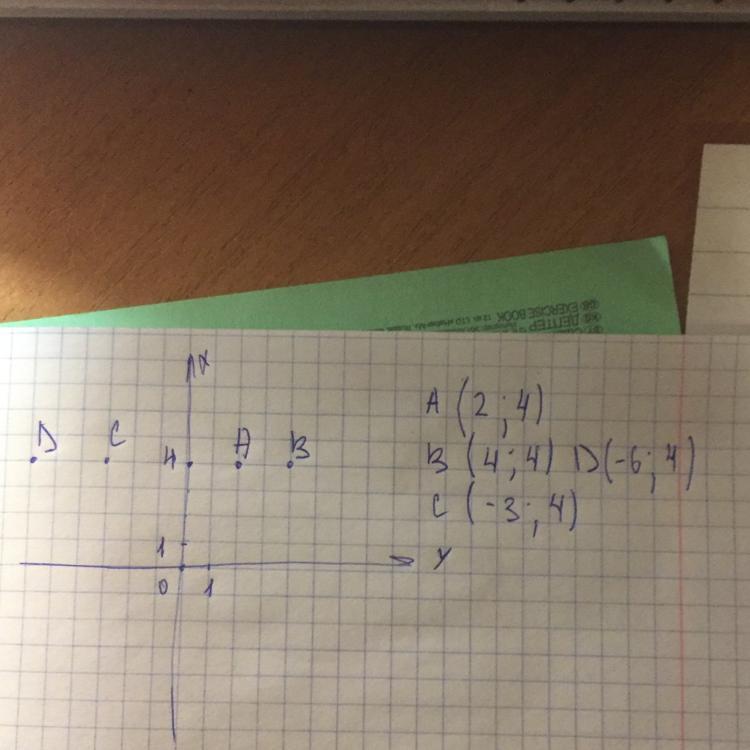 EXERCISE BOOK
ДЕПТЕР
X
D C 4 A B
1
0 1
Y
A (2 ; 4)
B (4 ; 4) D(-6 ; 4)
C (-3 ; 4)